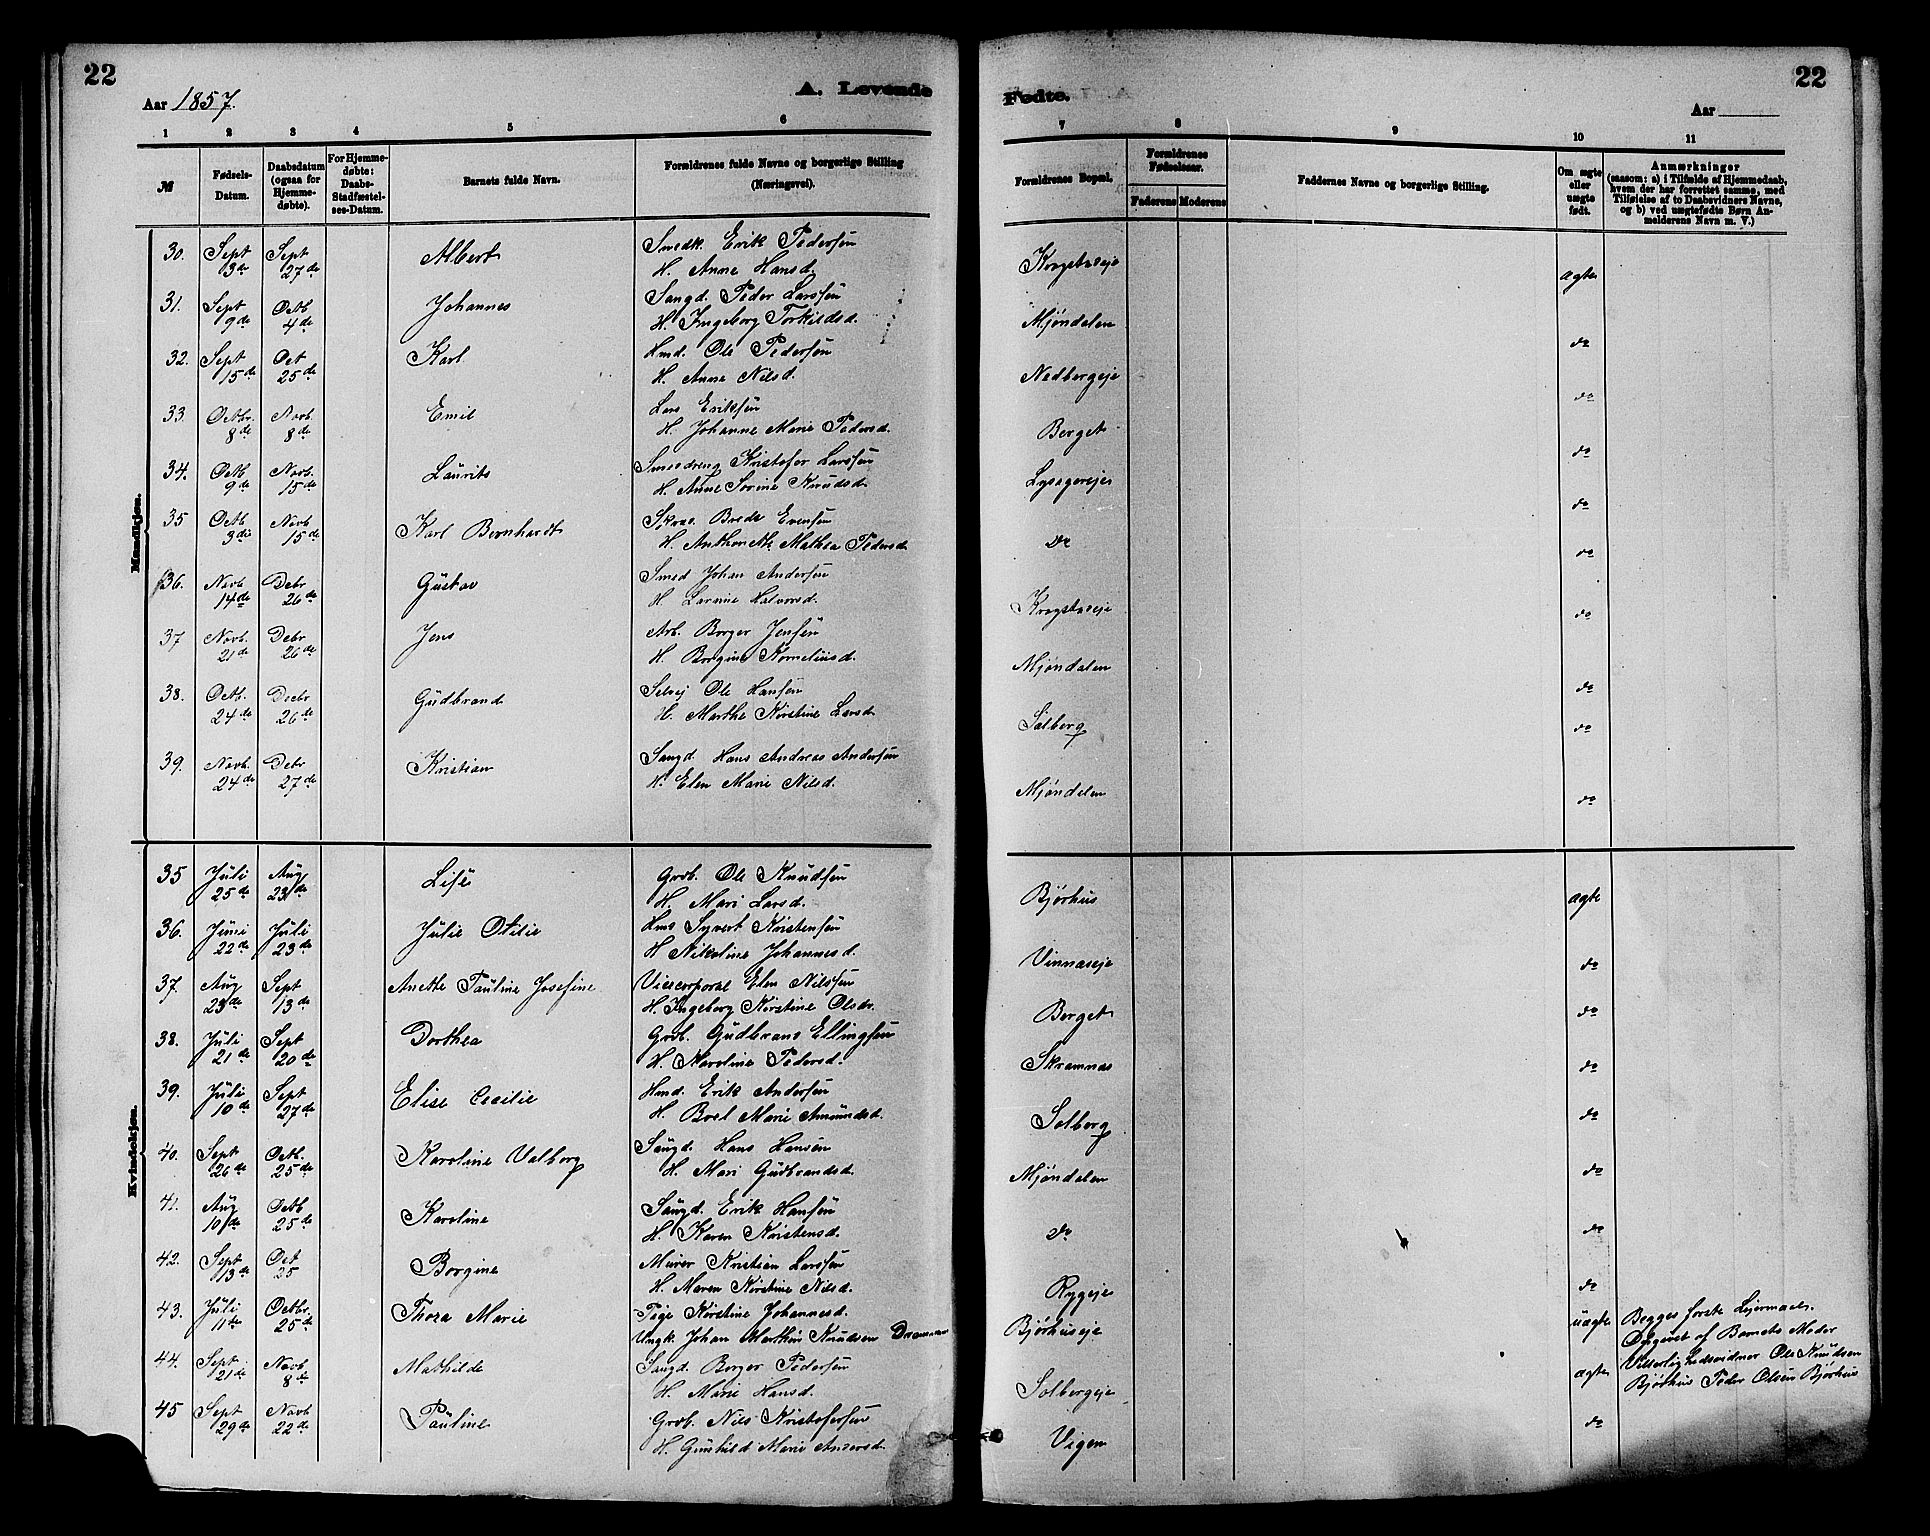 22
Aar 1857.
A. Levende
Fødte.
22
Aar
1 2 3 4 5 6 7 8 9 10 11
№
Fødsels-Datum.
Daabsdatum (ogsaa for Hjemme-døbte).
For Hjemme-døbte: Daabs-Stadfæstel-ses-Datum.
Barnets fulde Navn.
Forældrenes fulde Navne og borgerlige Stilling (Næringsvei).
Forældrenes Bopæl.
Forældrenes Fødselsaar.
Faderens Moderens
Faddernes Navne og borgerlige Stilling.
Om ægte eller uægte født.
Anmærkninger (saasom: a) i Tilfælde af Hjemmedaab, hvem der har forrettet samme, med Tilføielse af to Daabsvidners Navne, og b) ved uægtefødte Børn An-melderens Navn m. V.)
Mandkjøn.
30. Sept 3de Sept 27de Albert Smedk. Erik Pedersen Krogstadeje ægte
H. Anne Hansd.
31. Sept 9de Octb 4de Johannes Saugd. Peder Larssen Mjøndalen do
H. Ingeborg Torkildsd.
32. Sept 15de Oct 25de Karl Hmd. Ole Pedersen Nedbergeje do
H. Anne Nilsd.
33. Octbr. 8de Novb. 8de Emil Lars Eriksen Berget do
H. Johanne Marie Pedersd.
34. Octb 9de Novb. 15de Laurits Smeddreng Kristofer Larssen Lysagereje do
H. Anne Sorine Knudsd.
35 Octb. 3die Novb 15de Karl Bernhardt Skræd. Brede Evensen Do do
H. Anthonette Mathea Pedersd.
36. Novb 14de Debr 26de Gustav Smed Johan Andersen Krogstadeje do
H. Larine Halvorsd.
37 Novb. 21de Debr 26de Jens Arb. Borger Jensen Mjøndalen do
H. Borgine Kornelinsd.
38. Octb. 24de Decbr 26de Gudbrand Selvej Ole Hansen Solberg do
H. Marthe Kirstine Larsd.
39. Novb. 24de Debr 27de Kristian Saugd. Hans Andreas Andersen Mjøndalen do
H. Elen Marie Nilsd.
Kvindekjøn.
35 Juli 25de Aug 23de Lise Grob. Ole Knudsen Bjørhus ægte
H. Mari Larsd.
36. Juni 22de Juli 23de Julie Otilie Hms Syvert Kristensen Vinnaseje do
H Nikoline Johannesd.
37. Aug 23de Sept 13de Anette Pauline Josefine Vicecorporal Elen Nilssen Berget do
H. Ingeborg Kirstine Olsdr.
38. Juli 21de Sept 20de Dorthea Grob. Gudbrans Ellingsen Skramnas do
H. Karoline Pedersd.
39. Juli 10de Sept 27de Elise Cecilie Hmd. Erik Andersen Solberg do
H. Boel Marie Amundsd.
40. Sept 26de Octb. 25de Karoline Valborg Saugd. Hans Hansen Mjøndalen do
H. Mari Gudbrandsd.
41. Aug 10de Octb 25de Karoline Saugd. Erik Hansen Do do
H. Karen Kristensd.
42. Sept 13de Oct 25 Borgine Murer Kristian Larssen Rygeje do
H. Maren Kirstine Nilsd.
43. Juli 11te Octbr. 25de Thora Marie Pige Kirstine Johannesd. Bjørhuseje uægte Begges første Lejermaal.
Ungk. Johan Marthin Knudsen Drammen Opgivet af Barnets Moder
44. Sept 21de Novb 8de Mathilde Saugd. Borger Pedersen Solbergeje ægte Vitterlighedsvidner Ole Knudsen
H. Marie Hansd. Bjørhus Peder Olsen Bjørhus
45 Sept 29de Novb 22de Pauline Grob. Nils Kristofersen Vigen do
H Gunhild Marie Andersd.